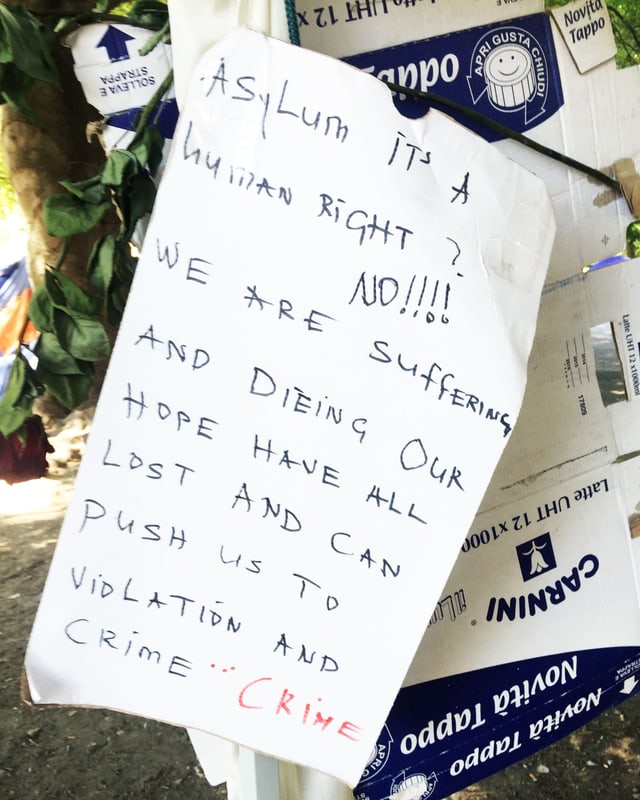 ASyLum iTs A
human RiGHT ?
NO!!!!
WE ARE SuffERiNG
AND DIEiNG OUR
HOPE HAVE ALL
LOST AND CAN
PUSH US TO
ViOLATiON AND
CRimE .. CRiME
SOLLEVA E
STRAPPA
Latte UHT 12 x
Tappo
APRI GUSTA CHIUDI
Novità
Tappo
Latte UHT 12 x1000ml
17809
Latte UHT 12 x1000
CARNINI
il Lu
Novità Tappo
Novità Tappo
SOLLEVA E
APRI